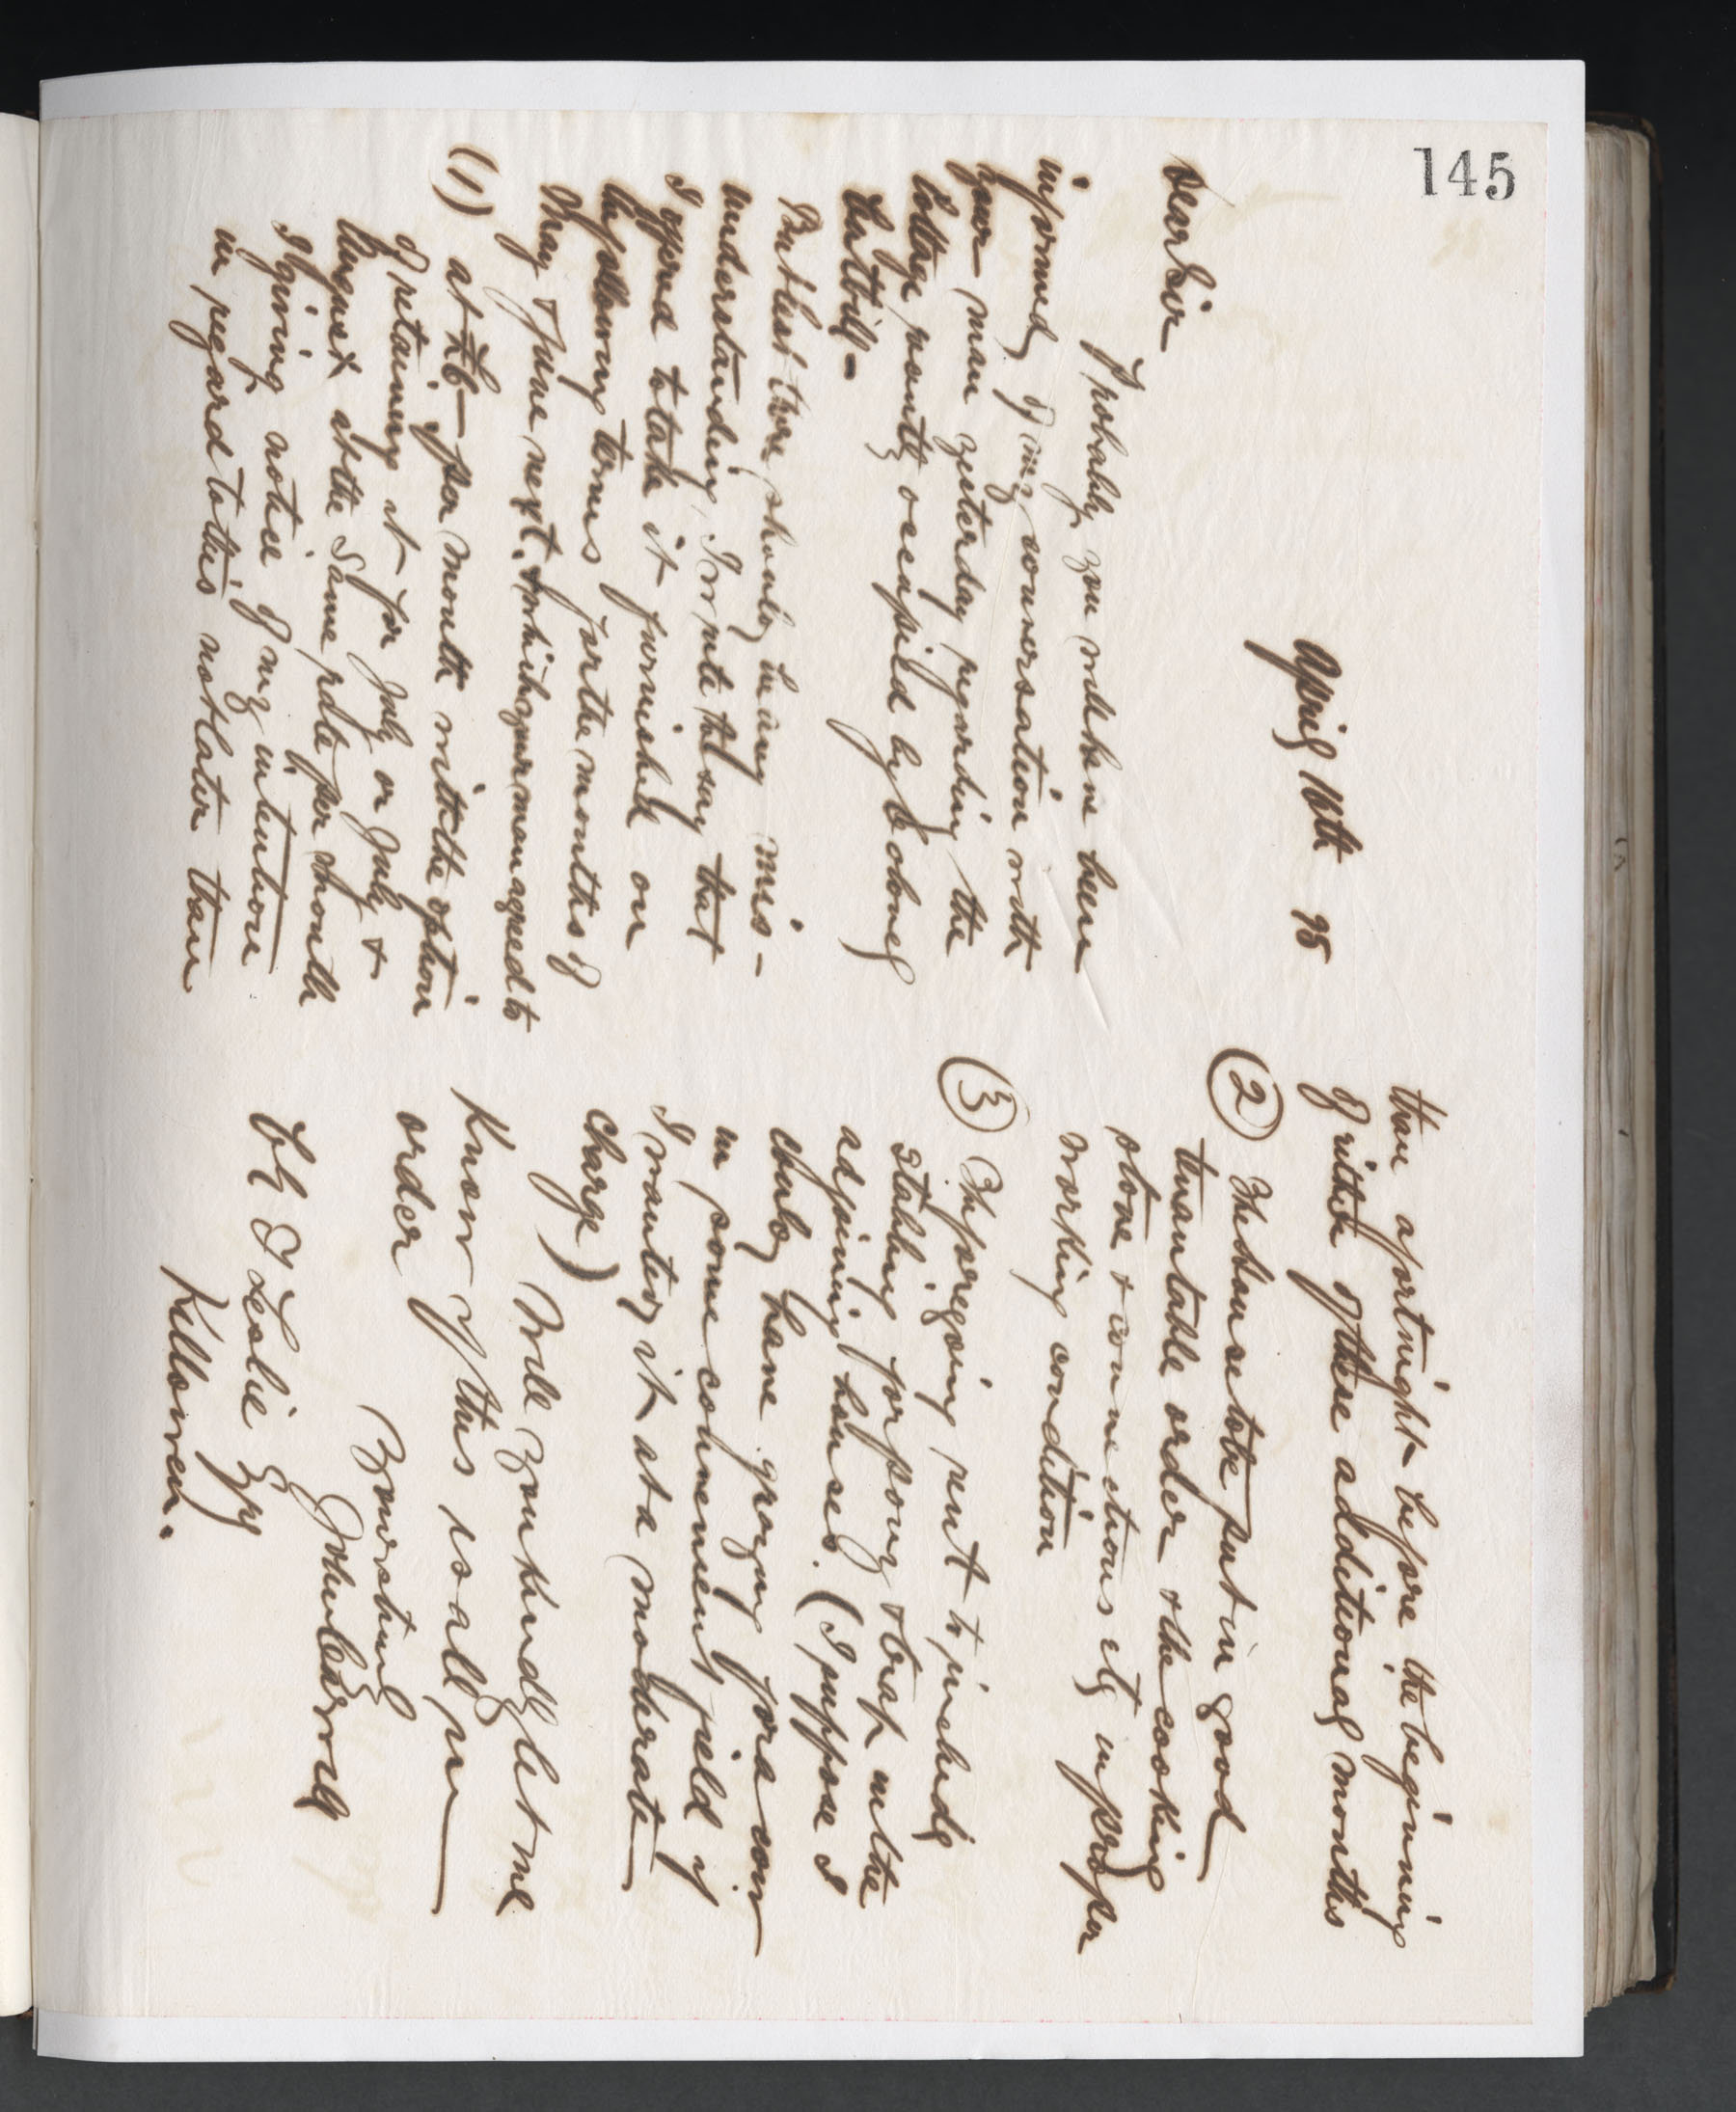 145
April 16th 95
Dear Sir
Probably you will have been
informed of my conversation with
your man yesterday regarding the
Cottage recently occupied by Colonel
But lest there should be any mis-
understanding I write to say that
I offered to take it furnished on
the following terms for the months of
May & June next. & which your man agreed to
(1) at £6 per month with the option
of retaining it for July or July &
August at the same rate per month
I giving notice of my intention
in regard to this not later than
than a fortnight before the beginning
of either of these additional months
(2) The house to be put in good
tenantable order & the cooking
stove & connections etc in proper
working condition
(3) The foregoing rent to include
stabling for pony & trap in the
adjoining houses. (I suppose I
could have grazing for a cow
in some convenient field if
I wanted it at a moderate
charge)
Will you kindly let me
know if this is all in
order
Yours truly
Leslie Esq